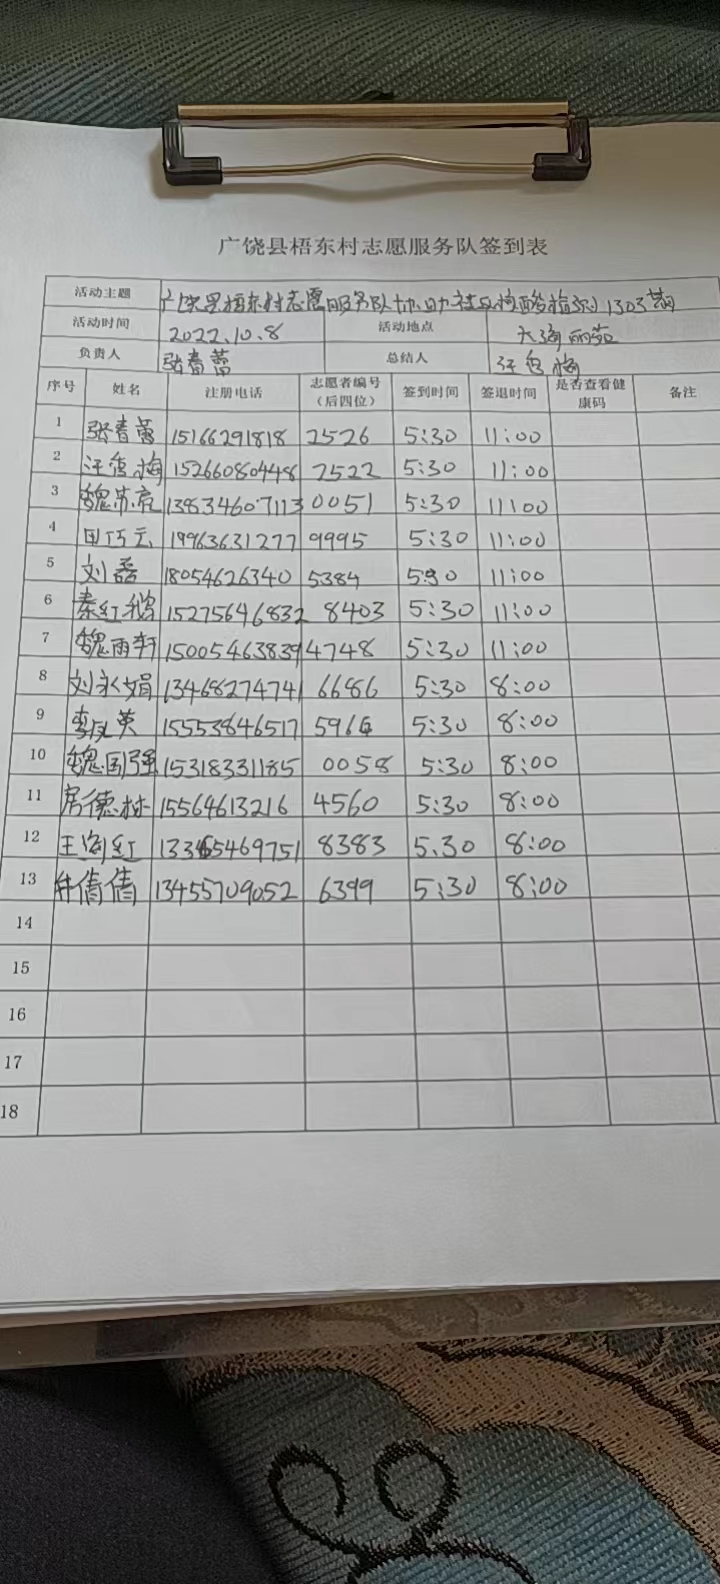 广饶县梧东村志愿服务队签到表
活动主题 广饶县梧东村志愿服务队协助社区核酸检测1303期
活动时间 2022.10.8 活动地点 大海丽苑
负责人 张春蕾 总结人 汪雪梅
序号 姓名 注册电话 志愿者编号（后四位） 签到时间 签退时间 是否查看健康码 备注
1 张春蕾 15166291818 2526 5:30 11:00
2 汪雪梅 15266080448 2522 5:30 11:00
3 魏苏亮 13834607113 0051 5:30 11:00
4 田巧云 19963631277 9995 5:30 11:00
5 刘磊 18054626340 5384 5:30 11:00
6 秦红鹅 15275646832 8403 5:30 11:00
7 魏雨轩 15005463839 4748 5:30 11:00
8 刘永娟 13468274741 6686 5:30 8:00
9 李凤英 15553846517 5964 5:30 8:00
10 魏国强 15318331185 0058 5:30 8:00
11 房德树 15564613216 4560 5:30 8:00
12 王海红 13365469751 8383 5.30 8:00
13 倩倩 13455709052 6399 5:30 8:00
14
15
16
17
18